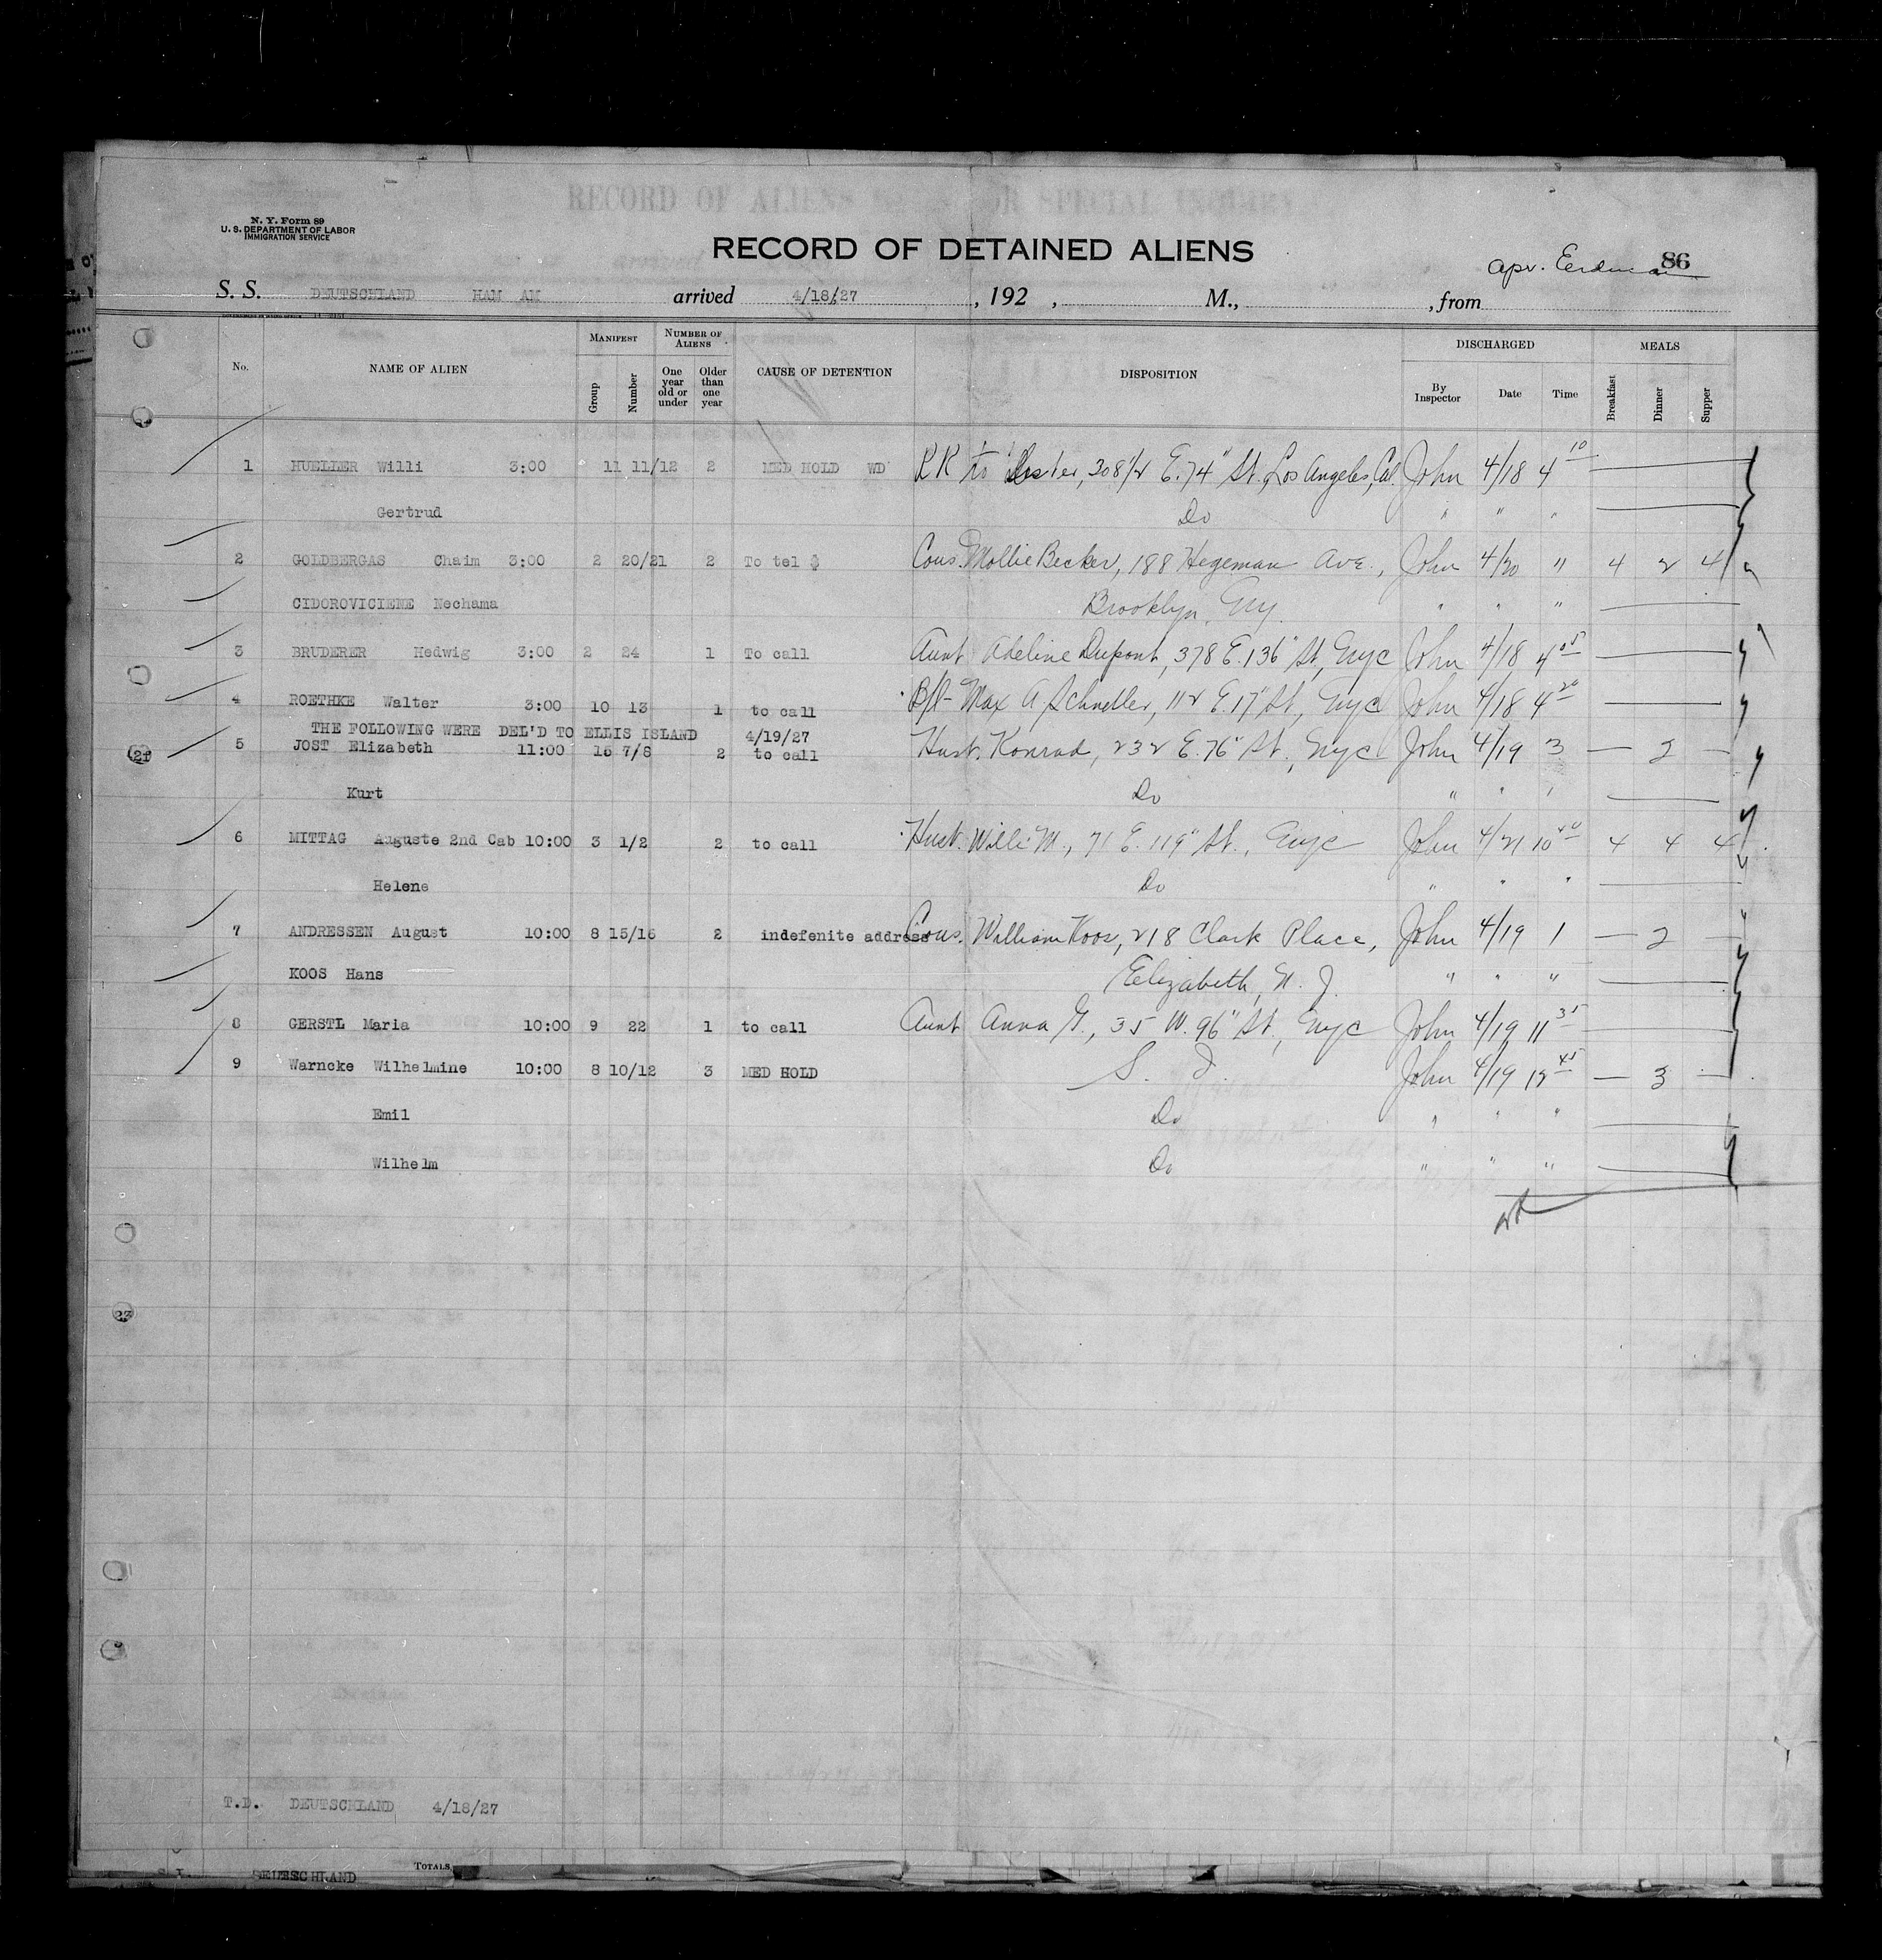 N. Y. Form 89
U. S. DEPARTMENT OF LABOR
IMMIGRATION SERVICE
RECORD OF DETAINED ALIENS
86
S. S. DEUTSCHLAND HAM AM arrived 4/18/27, 192 , M., , from
No. NAME OF ALIEN MANIFEST Group Number NUMBER OF ALIENS One year old or under Older than one year CAUSE OF DETENTION DISPOSITION DISCHARGED By Inspector Date Time MEALS Breakfast Dinner Supper
1 HUELLER Willi 3:00 11 11/12 2 MED HOLD WD RR to 308 1/2 E. 74" St., Los Angeles, Cal. John 4/18 4 10
Gertrud Do " " "
2 GOLDBERGAS Chaim 3:00 2 20/21 2 To tel $ Cous. Mollie Becker, 188 Hegeman Ave., John 4/20 " 4 2 4
CIDOROVICIENE Nechama Brooklyn, Ny. " " "
3 BRUDERER Hedwig 3:00 2 24 1 To call Aunt Adeline Dupont, 378 E. 136" St, Nyc John 4/18 4 05
4 ROETHKE Walter 3:00 10 13 1 to call Max A. Schneller, 112 E. 17" St, Nyc John 4/18 4 20
THE FOLLOWING WERE DEL'D TO ELLIS ISLAND 4/19/27
5 JOST Elizabeth 11:00 16 7/8 2 to call Husb. Konrad, 232 E. 76" St., Nyc John 4/19 3 — 2 —
Kurt Do " " "
6 MITTAG Auguste 2nd Cab 10:00 3 1/2 2 to call Husb. Willi M., 71 E. 119" St., Nyc John 4/21 10 40 4 4 4
Helene Do " " "
7 ANDRESSEN August 10:00 8 15/16 2 indefenite address Cous. William Koos, 218 Clark Place, John 4/19 1 — 2 —
KOOS Hans Elizabeth, N. J. " " "
8 GERSTL Maria 10:00 9 22 1 to call Aunt Anna G., 35 W. 96" St., Nyc John 4/19 11 35
9 Warncke Wilhelmine 10:00 8 10/12 3 MED HOLD S. I. John 4/19 12 45 — 3 —
Emil Do " " "
Wilhelm Do " " "
T.D. DEUTSCHLAND 4/18/27
TOTALS,
S.I. DEUTSCHLAND